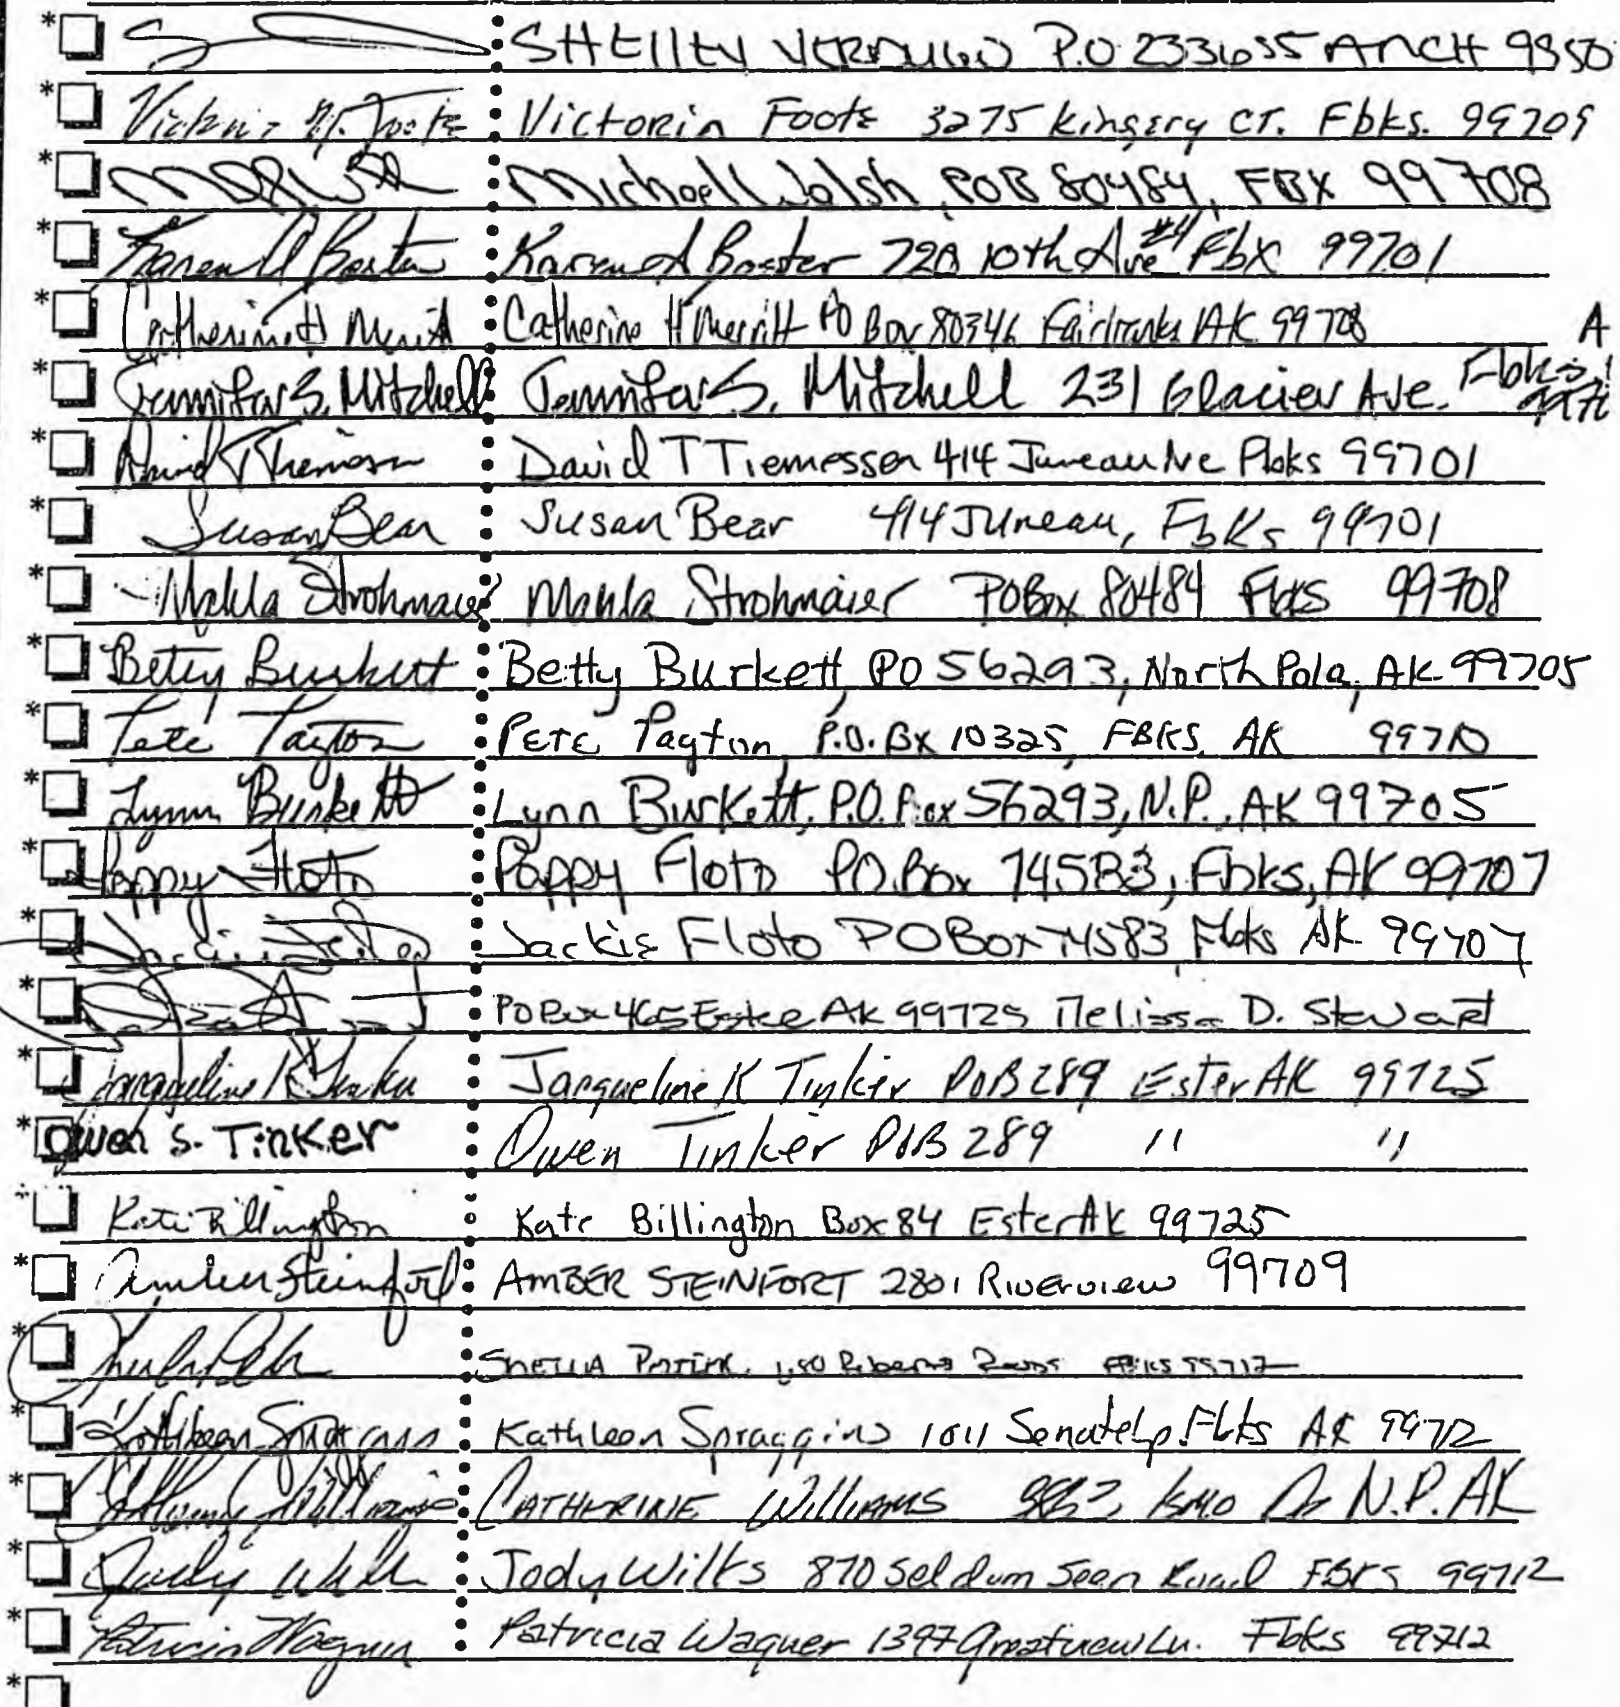 * SHEllEY VERDUGO P.O 233635 ANCH
* Victoria M. Foote Victoria Foote 3275 Kingsry CT. Fbks. 99709
* Michael Walsh, POB 80484, FBX 99708
* Karen A Baxter 720 10th Ave #4 Fbx 99701
* Catherine H Merritt Catherine H Merritt PO Box 80346 Fairbanks AK 99708
A
* Jennifer S. Mitchell Jennifer S. Mitchell 231 Glacier Ave. Fbks.
* David T Tiemessen David T Tiemessen 414 Juneau Ave Fbks 99701
* Susan Bear Susan Bear 414 Juneau, Fbks 99701
* Strohmaier Strohmaier PO Box 80484 Fbks 99708
* Betty Burkett Betty Burkett, PO 56293, North Pole, AK 99705
* Pete Payton Pete Payton, P.O. Bx 10325, FBKS, AK 99710
* Lynn Burkett Lynn Burkett, P.O. Box 56293, N.P., AK 99705
* Poppy Floto Poppy Floto P.O. Box 74583, Fbks, AK 99707
* Jackie Floto PO Box 74583, Fbks AK 99707
* PO Box 465 Ester Ak 99725 Melissa D. Stewart
* Jacqueline K Tinker Jacqueline K Tinker POB 289 Ester AK 99725
* Owen S. Tinker Owen Tinker POB 289 " "
Kate Billington Kate Billington Box 84 Ester AK 99725
* Amber Steinfort AMBER STEINFORT 2801 Riverview 99709
* SHEILA FBKS 99712
* Kathleen Spraggins Kathleen Spraggins 1011 Senate Lp. Fbks AK 99712
* Catherine Williams CATHERINE WILLIAMS N.P. AK
* Jody Wilts 870 Seldum Seen Road FBKS 99712
* Patricia Wagner Patricia Wagner 1397 Greatview Ln. Fbks 99712
*